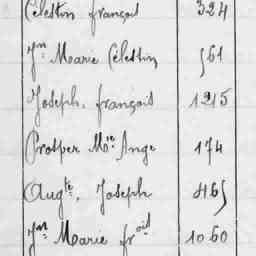 Célestin françois 324
Jn Marie Célestin 561
Joseph, françois 1215
Prosper Mie Ange 174
Augte, Joseph 465
Jn Marie froid 1060